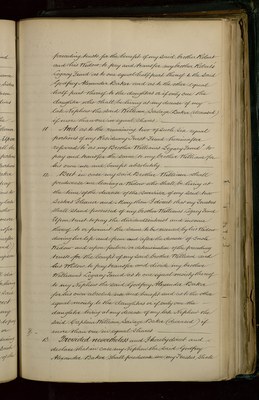 preceding trusts for the benefit of my said brother Robert
and his Widow to pay and transfer my brother Robert's
Legacy Fund as to one equal half part thereof to the said
Godfrey Alexander Baker and as to the other equal
half part thereof to the daughters or if only one the
daughter who shall be living at my decease of my
late Nephew the said William Baker (deceased)
if more than one in equal shares
And as to the remaining two of such equal
portions of my Residuary Trust Fund hereinafter
referred to as "my Brother William Legacy Fund" To
pay and transfer the same to my brother William for
his own use and benefit absolutely
But in case my said Brother William shall
predecease me leaving a Widow who shall be living at
the time of the decease of the survivor of my said two
Sisters and Mary then I direct that my Trustees
shall stand possessed of my brother William's Legacy Fund
Upon trust to pay the annual income
thereof to or permit the same to be received by his Widow
during her life and from and after the decease of such
Widow and upon failure or determination of the preceding
trusts for the benefit of my said brother William and
his Widow to pay transfer and divide my brother
William's Legacy Fund as to one equal moiety thereof
to my Nephew the said Godfrey Alexander Baker
for his own use and benefit and as to the other
equal moiety to the daughters or if only one the
daughter living at my decease of my late Nephew the
said Captain William Baker (deceased) if
more than one in equal shares
Provided nevertheless and I hereby direct and
declare that in case my Nephew the said Godfrey
Alexander Baker shall predecease me my Trustees shall